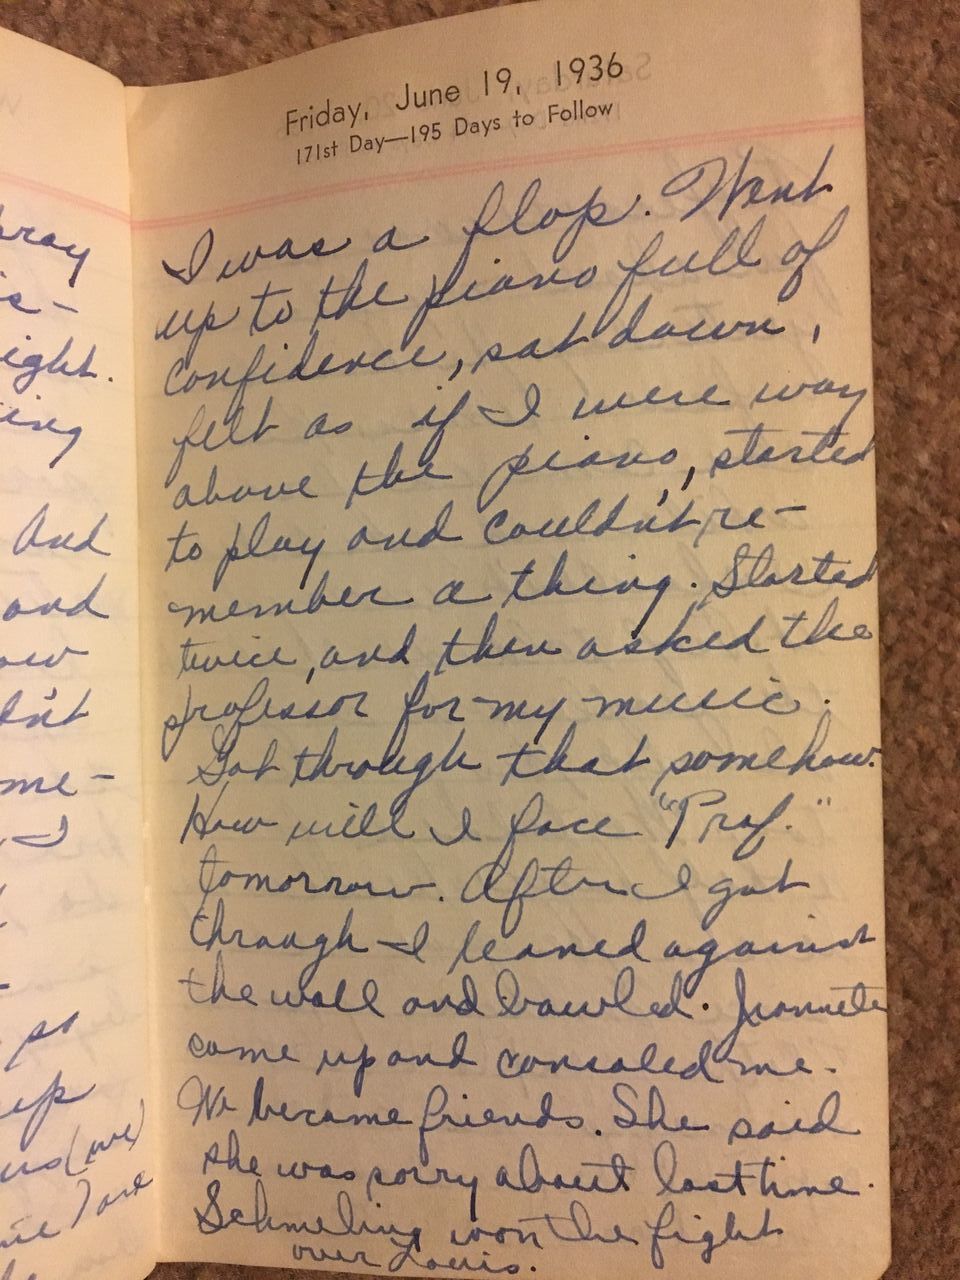 Friday, June 19, 1936
171st Day—195 Days to Follow
I was a flop. Went
up to the piano full of
confidence, sat down,
felt as if I were way
above the piano, started
to play and couldn't re-
member a thing. Started
twice, and then asked the
professor for my music.
Got through that somehow.
How will I face "Prof."
tomorrow. After I got
through I leaned against
the wall and bawled. Jeannete
came up and consoled me.
We became friends. She said
she was sorry about last time.
Schmeling won the fight
over Louis.
ight.
ing
And
and
ow
dn't
me-
I
so
up
us (me)